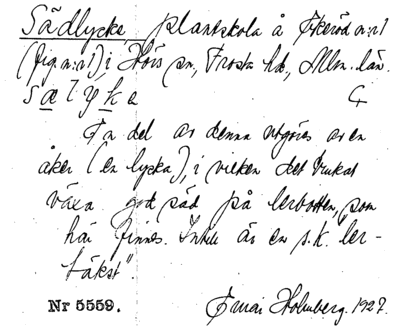 Sädlycke, plantskola å Åkeröd n:r 1
(fig. n:r 1), i Hörs sn, Frosta hd, Mlm. län.
sælyke
En del av denna utgöres av en
åker (en lycka), i vilken det brukat
växa god säd på lerbotten, som
här finnes. Inhek är en s.k. "ler-
täkt"
Nr 5559.
Holmberg. 1927.